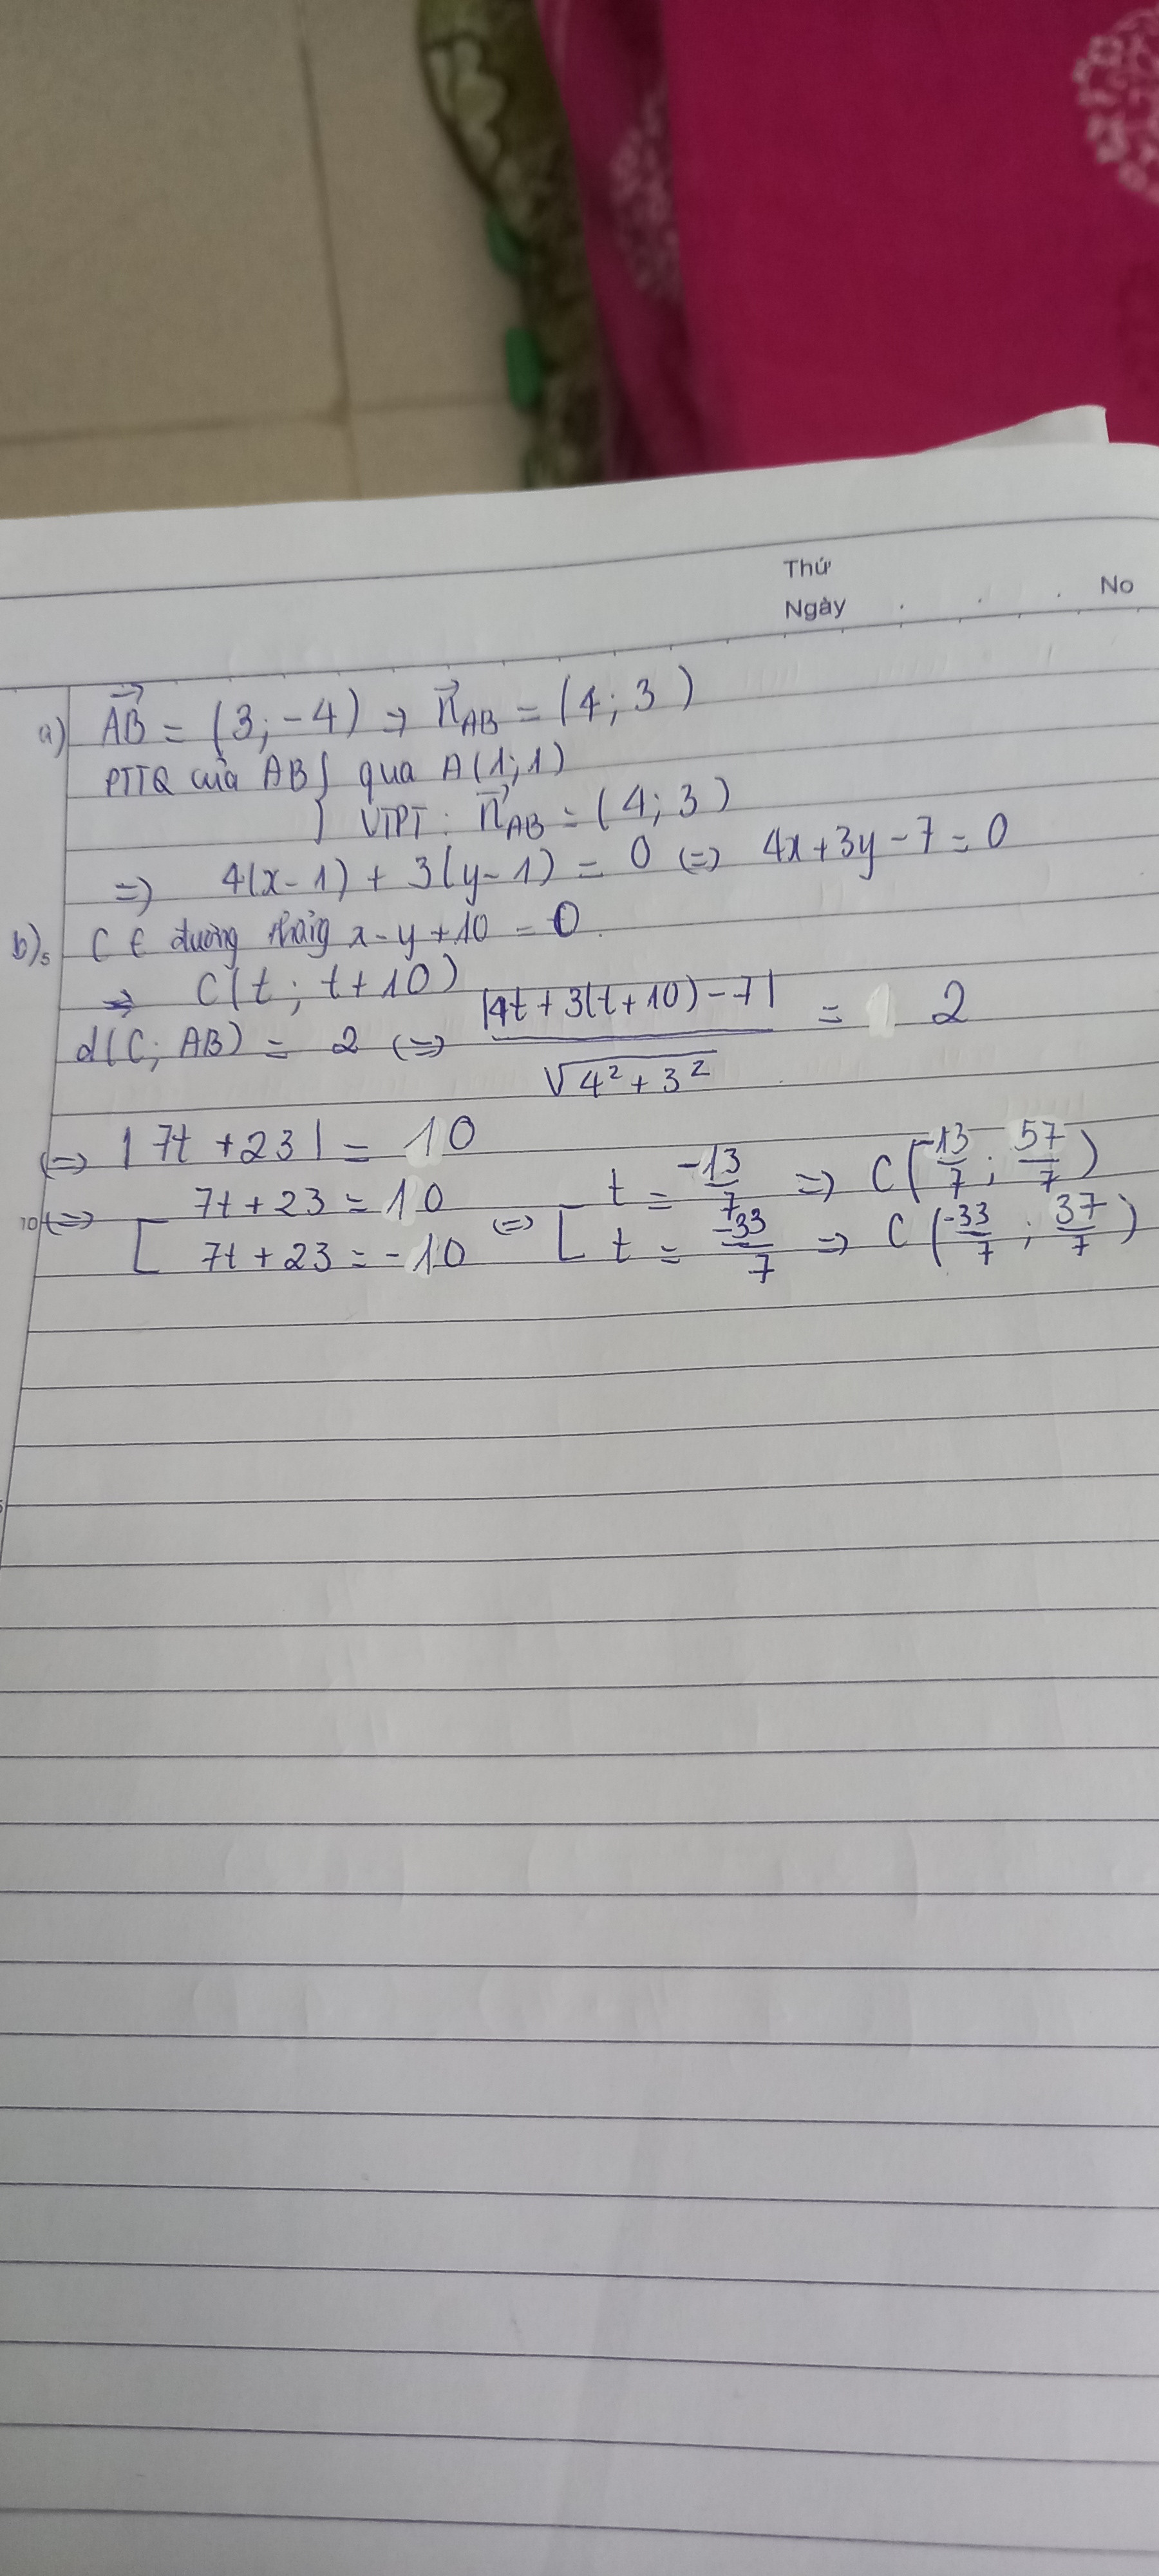 Thứ
Ngày . . . No
a) AB→ = (3; -4) → n→AB = (4; 3)
PTTQ của AB { qua A(1; 1)
VTPT: n→AB = (4; 3)
=> 4(x-1) + 3(y-1) = 0 (=) 4x+3y-7=0
b) 5 C ∈ đường thẳng x-y+10 = 0.
=> C(t; t+10)
d(C; AB) = 2 (=) |4t+3(t+10)-7| / √4²+3² = 2
(=) |7t+23| = 10
10 (=) [ 7t+23 = 10 (=) [ t = -13/7 => C(-13/7; 57/7)
7t+23 = -10 t = -33/7 => C(-33/7; 37/7)